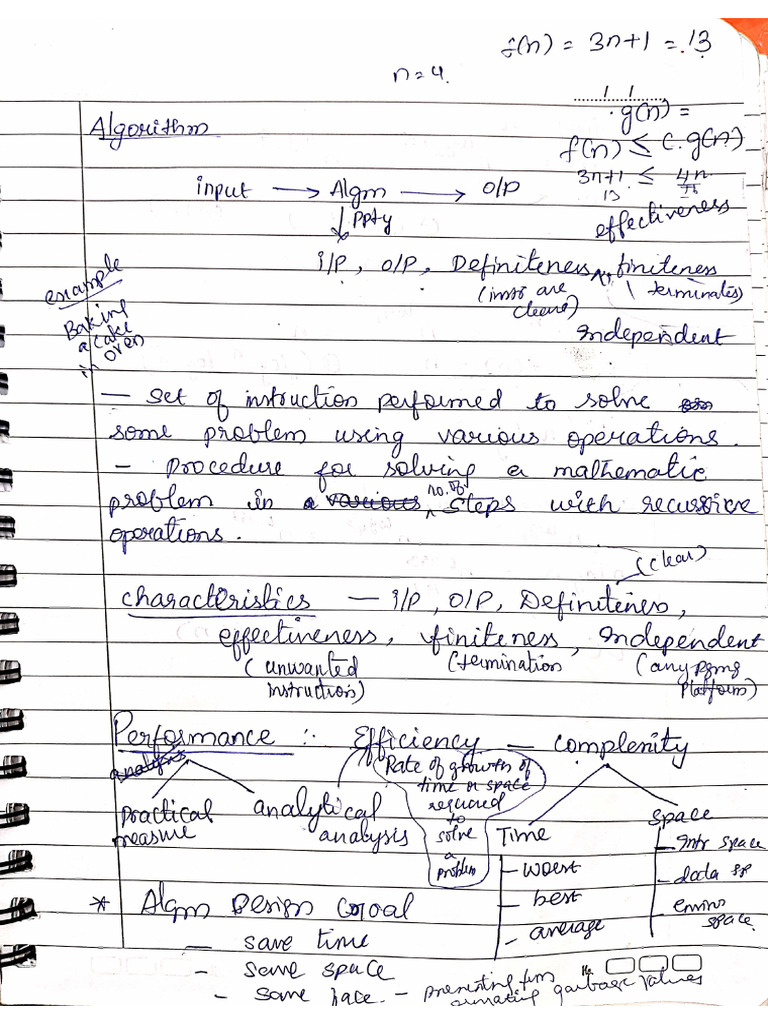 f(n) = 3n+1 = 13
n=4.
g(n) =
Algorithm
f(n) ≤ c.g(n)
3n+1 ≤ 4n
13
input → Algm → O/P
ppty
effectiveness
i/P, O/P, Definiteness, finiteness
(instr are clear) (terminates)
Independent
example
Baking
a cake
in oven
— set of instruction performed to solve
some problem using various operations.
- procedure for solving a mathematic
problem in a various no. of steps with recursive
operations.
(clear)
characteristics — i/P, O/P, Definiteness,
effectiveness, finiteness, Independent
(unwanted (termination (any pgmg
instruction) platform)
Performance :- Efficiency — complexity
analysis
Rate of growth of
time or space
required
to
solve
a
problem
practical analytical
measure analysis
Time space
- worst - Intr space
- best - data sp
- average - enviro
space.
* Algm Design Goal
— save time
- save space
- save face. - preventing frm
garbage values